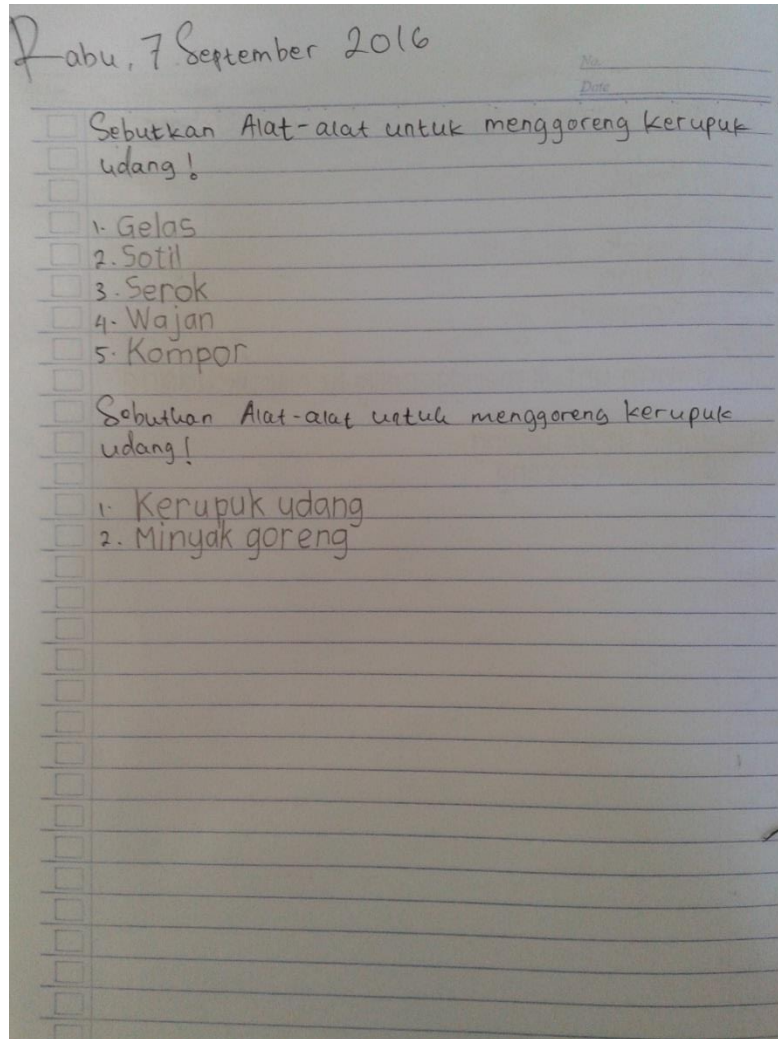 Rabu, 7 September 2016
No.
Date
Sebutkan Alat-alat untuk menggoreng kerupuk
udang!
1. Gelas
2. Sotil
3. Serok
4. Wajan
5. Kompor
Sebutkan Alat-alat untuk menggoreng kerupuk
udang!
1. Kerupuk udang
2. Minyak goreng